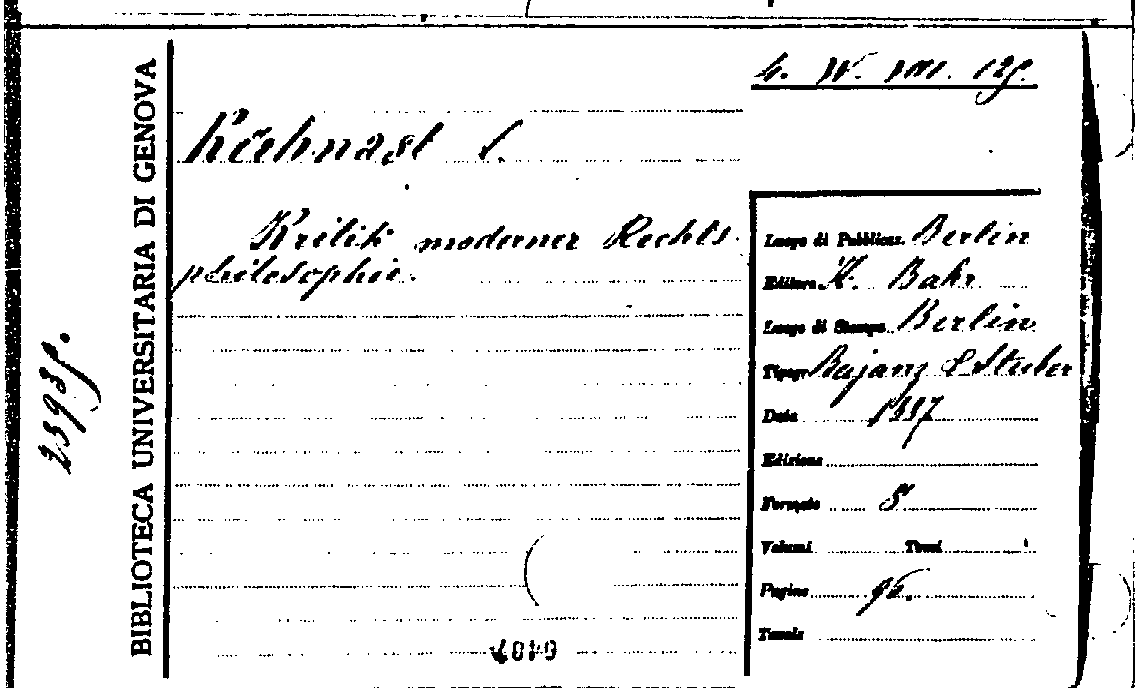 BIBLIOTECA UNIVERSITARIA DI GENOVA
Kühnast L.
Kritik moderner Rechts-
philosophie.
Luogo di Pubblicaz. Berlin
Editore H. Bahr
Luogo di Stampa Berlin
Tipogr. & Stuber
Data 1887
Edizione
Formato 8
Volumi Tomi
Pagine 96.
Tavole